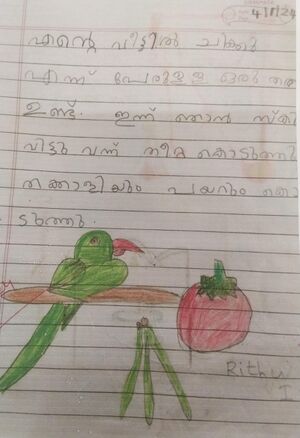 4/1/24
എന്റെ വീട്ടിൽ ചിക്കു
എന്ന് പേരുള്ള ഒരു തത്ത
ഉണ്ട്. ഇന്ന് ഞാൻ സ്കൂ
വിട്ടു വന്ന് തീറ്റ കൊടുത്തു
തക്കാളിയും പയറും കൊ
ടുത്തു.
Rithu
I